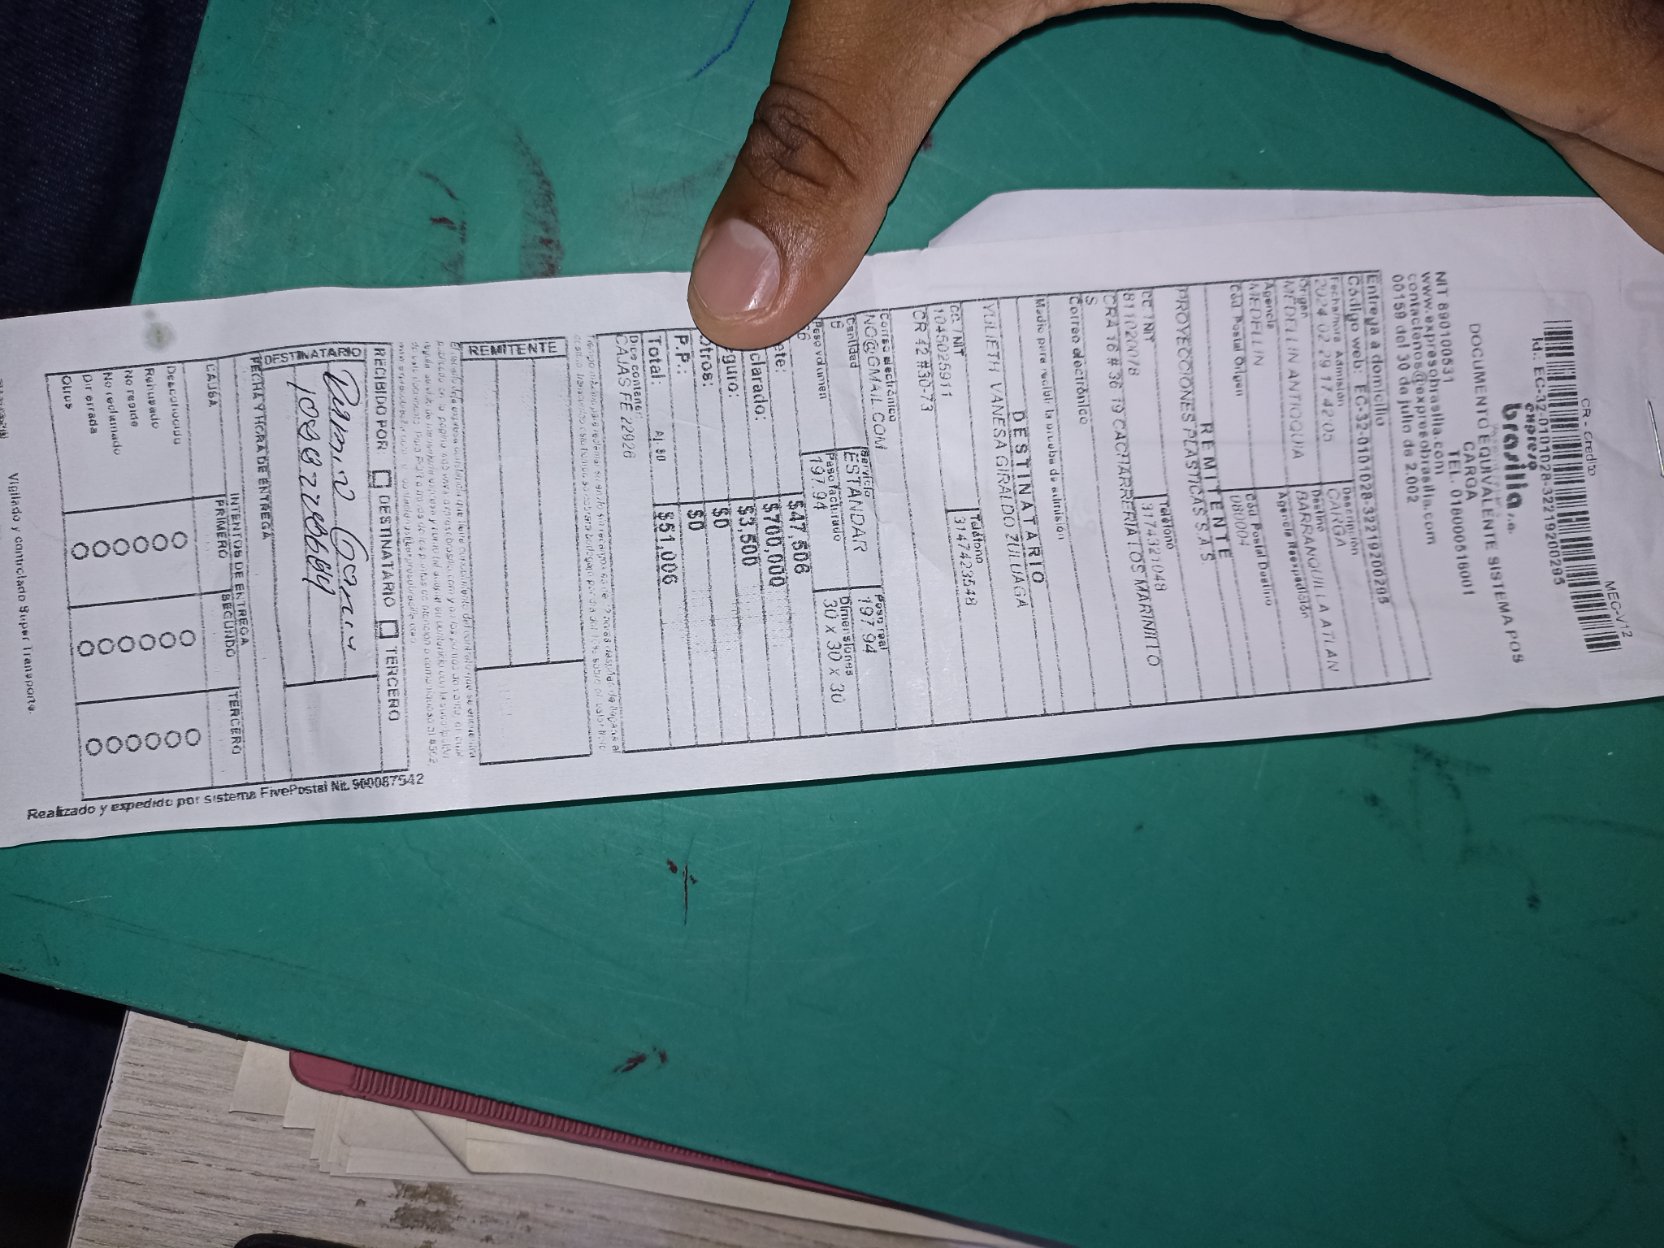 MEC-V12
CR - Credito
Id.: EC-32-0101028-32219200285
expreso
brasilia s.a.
DOCUMENTO EQUIVALENTE SISTEMA POS
CARGA
TEL. 018000516001
NIT 890100531
www.expresobrasilia.com
contactenos@expresobrasilia.com
00159 del 30 de julio de 2.002
Entrega a domicilio
Código web: EC-32-0101028-32219200285
Fecha/hora Admisión
2024 02 29 17:42:05
Descripción
CARGA
Origen
MEDELLIN ANTIOQUIA
Destino
BARRANQUILLA ATLAN
Agencia
MEDELLIN
Agencia Responsable
Cód. Postal Origen
Cód. Postal Destino
080004
REMITENTE
PROYECCIONES PLASTICAS S.A.S
CC / NIT
811020078
Teléfono
3174321048
CRA 16 # 36 19 CACHARRERIATOS MARINILLO
Correo electrónico
S
Medio para recibir la prueba de admisión
DESTINATARIO
YULIETH VANESA GIRALDO ZULUAGA
CC / NIT
1045025911
Teléfono
3147423548
CR 42 #30-73
Correo electrónico
NO@GMAIL.COM
Cantidad
6
Servicio
ESTANDAR
Peso real
197.94
Peso volumen
Peso facturado
197.94
Dimensiones
30 x 30 x 30
ete: $47,506
clarado: $700,000
guro: $3,500
Otros: $0
P.P.: $0
Total: Aj: $0 $51,006
Dice contener:
CAJAS FE 22926
REMITENTE
RECIBIDO POR DESTINATARIO TERCERO
DESTINATARIO
FECHA Y HORA DE ENTREGA
INTENTOS DE ENTREGA
CAUSA PRIMERO SEGUNDO TERCERO
Desconocido
Rehusado
No reside
No reclamado
Dir errada
Otros
Realizado y expedido por sistema FivePostal Nit. 900087542
Vigilado y controlado Super Transporte.